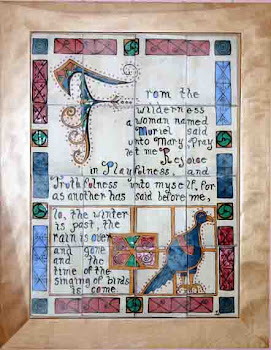 From the
wilderness
a woman named
Muriel said
unto Mary Pray
let me Rejoice
in Playfulness, and
Truthfulness unto myself, for
as another has said before me,
lo, the winter
is past, the
rain is over
and gone
and the
time of the
singing of birds
is come